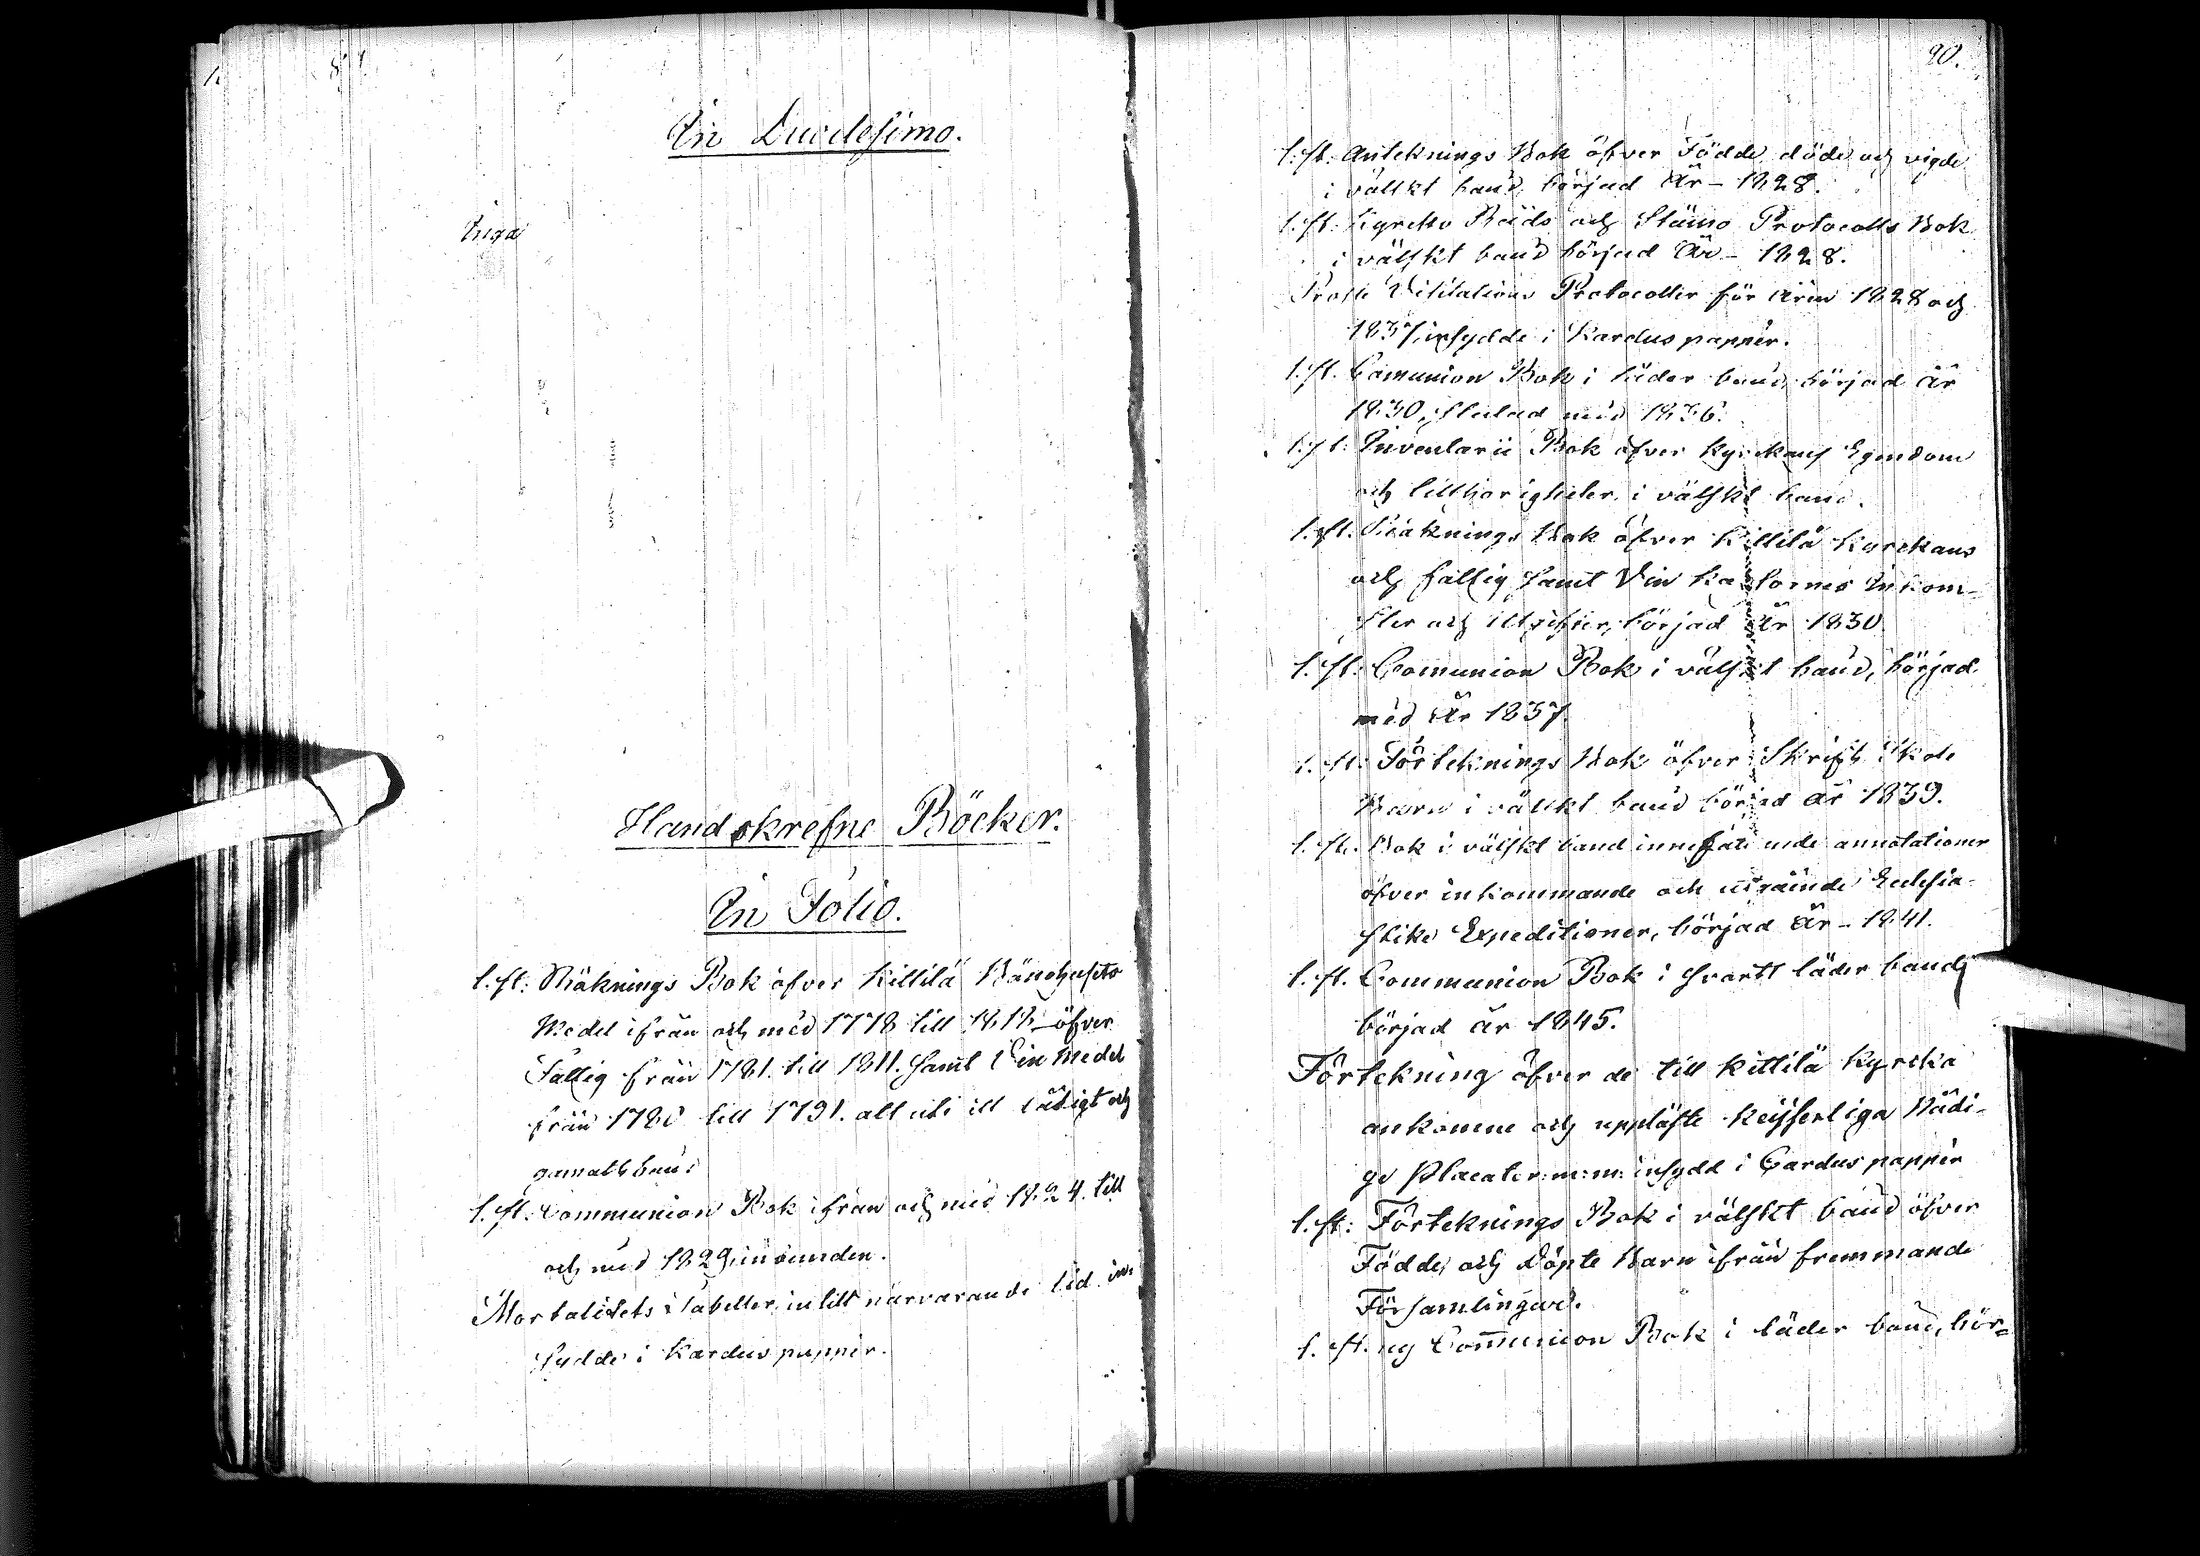 89.
In Duodesimo.
Inga
Handskrefne Böcker.
In Folio.
1. st: Räknings Bok öfver Kittilä Bänehusets
Medel ifrån och med 1778 till 1818 öfver
Fattig från 1781. till 1811. samt Vin medel
från 1780 till 1791. alt uti ett
gamalt band
1. st: Communion Bok ifrån och med 1824. till
och med 1829, inbunden.
Mortalitets Tabeller in till närvarande tid in-
sydde i Kardus papper.
90.
1. st. Anteknings Bok öfver Födde döde och vigde
i välskt band, börjad År - 1828.
1. st: Kyrcko Råds och Stämo Protocolls Bok
i välskt band börjad År - 1828.
Prosti Visitations Protocoller för åren 1828 och
1837, insydde i Kardus papper.
1. st. Comunion Bok i läder band, börjad År
1830, slutad med 1836.
1. st: Inventarii Bok öfver Kyrckans Egendom
och tillhörigheter i välskt band.
1. st. Räknings Bok öfver Kittilä Kyrckans
och fattig samt Vin Kassornes Inkom-
ster och utgifter, börjad År 1830.
1. st: Comunion Bok i välskt band, börjad
med År 1837.
1. st: Förteknings Bok öfver Skrift Skole
Barn i välskt band börjad år 1839.
1. st. Bok i välskt band innefattande annotationer
öfver inkommande och utgående Eclesia-
stike Expeditioner, börjad År - 1841.
1. st. Communion Bok i svartt läder band,
börjad år 1845.
Förtekning öfver de till Kittilä Kyrcka
ankomne och uppläste Keijserliga Nådi-
ge Placater m:m: insydd i Cardus papper
1. st: Förteknings Bok i välskt band öfver
Födde och Döpte Barn ifrån fremmande
Församlingar.
1. st. ny Communion Bok i läder band, bör-